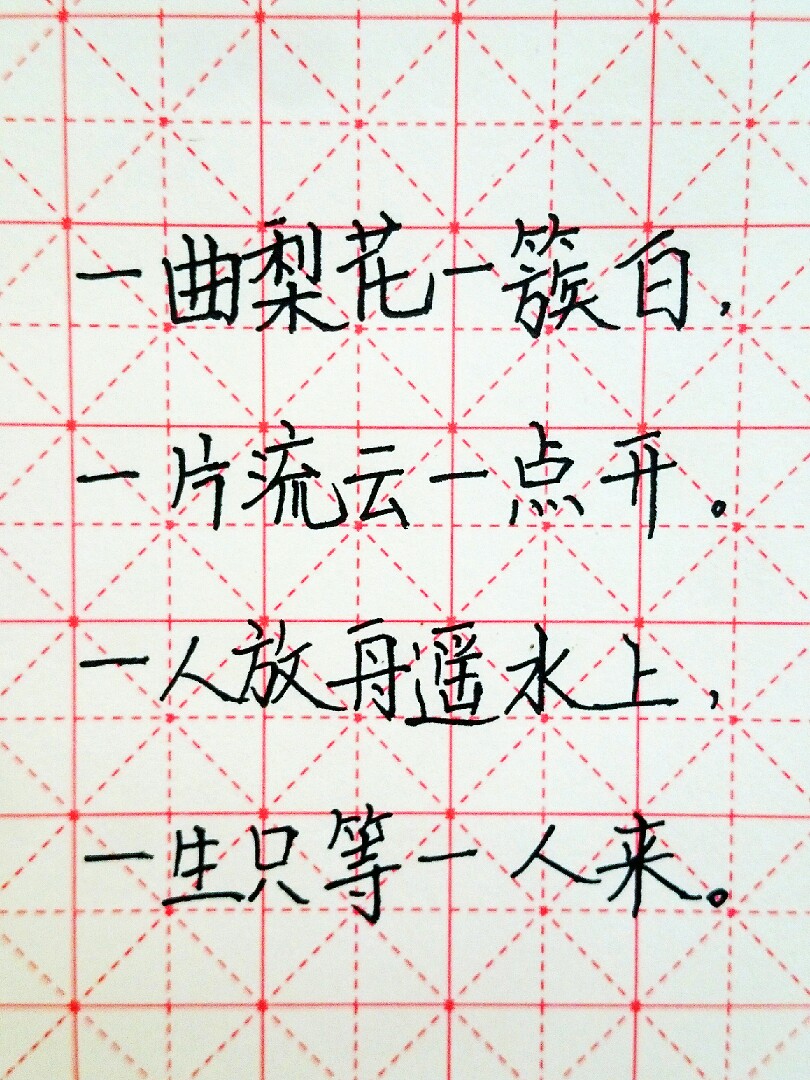 一曲梨花一簇白，
一片流云一点开。
一人放舟遥水上，
一生只等一人来。